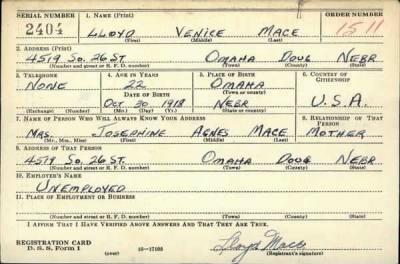 SERIAL NUMBER 1. NAME (Print) ORDER NUMBER
2404 LLOYD VENICE MACE 1511
(First) (Middle) (Last)
2. ADDRESS (Print)
4519 So. 26 St. OMAHA DOUG NEBR
(Number and street or R. F. D. number) (Town) (County) (State)
3. TELEPHONE 4. AGE IN YEARS 5. PLACE OF BIRTH 6. COUNTRY OF CITIZENSHIP
NONE 22 OMAHA
DATE OF BIRTH (Town or county)
OCT 30 1918 NEBR U.S.A.
(Exchange) (Number) (Mo.) (Day) (Yr.) (State or country)
7. NAME OF PERSON WHO WILL ALWAYS KNOW YOUR ADDRESS 8. RELATIONSHIP OF THAT PERSON
MRS. JOSEPHINE AGNES MACE MOTHER
(Mr., Mrs., Miss) (First) (Middle) (Last)
9. ADDRESS OF THAT PERSON
4519 So. 26 St. OMAHA DOUG NEBR
(Number and street or R. F. D. number) (Town) (County) (State)
10. EMPLOYER'S NAME
UNEMPLOYED
11. PLACE OF EMPLOYMENT OR BUSINESS
(Number and street or R. F. D. number) (Town) (County) (State)
I AFFIRM THAT I HAVE VERIFIED ABOVE ANSWERS AND THAT THEY ARE TRUE.
REGISTRATION CARD Lloyd Mace
D. S. S. Form 1 (over) 16—17105 (Registrant's signature)